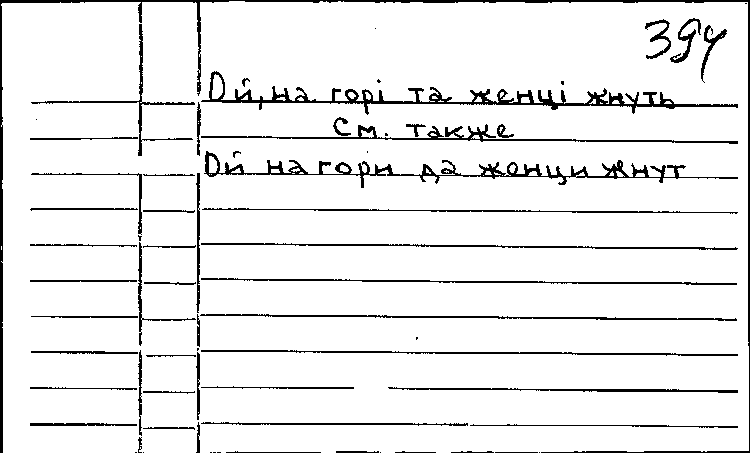 394
Ой, на горі та женці жнуть
См. также
Ой на гори да женци жнут